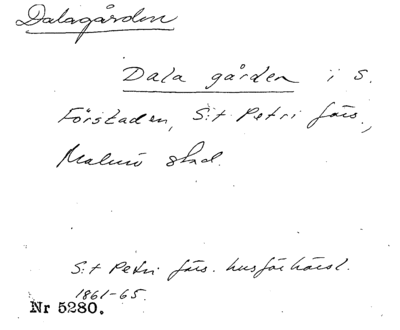 Dalagården
Dala gården i S.
Förstaden, S:t Petri förs.,
Malmö stad.
S:t Petri förs. husförhörsl.
1861-65.
Nr 5280.